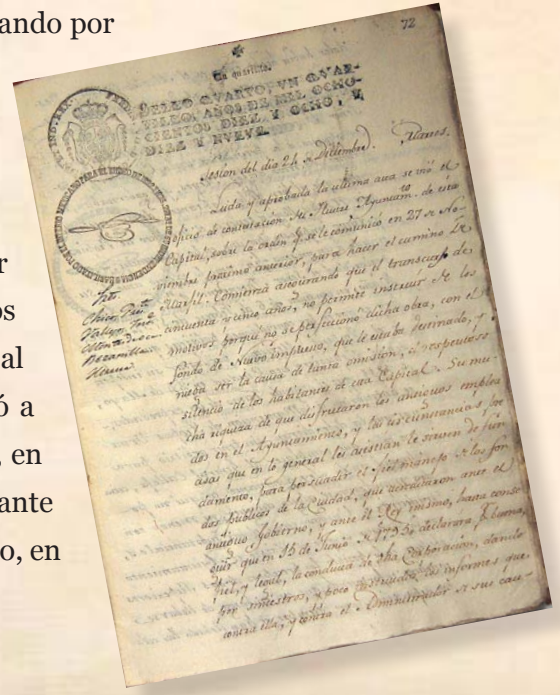 ando por
r
os
al
ó a
, en
ante
o, en
72
Un quartillo.
SELLO QVARTO, VN QVAR-
TILLO, AÑOS DE MIL OCHO-
CIENTOS DIEZ Y OCHO, Y
DIEZ Y NUEVE.
Sesion del dia 24 de Diciembre. Martes.
Leida y aprobada la ultima acta se vió el
oficio de contestacion del Ayuntam.to de esta
Capital, sobre la orden q. se le comunicó en 27 de No-
viembre proximo anterior, para hacer el camino de
Marfil. Comienza asegurando que el transcurso de
cincuenta y cinco años, no permite instruir de los
motivos porque no se perfeccionó dicha obra, con el
fondo de Nuevo impuesto, que le estaba destinado, y
silencio de los habitantes de esta Capital. Su mu-
cha riqueza de que disfrutaron los antiguos emplea-
dos en el Ayuntamiento, y las circunstancias
que en lo general les asestian le sirven de fun-
damento, para persuadir el fiel manejo de los fon-
dos publicos de la Ciudad, que vindicaron ante el
antiguo Gobierno, y ante el Rey mismo, hasta conse-
guir que en 15 de Junio de 1795, declarara, buena,
fiel, y legal, la conducta de dha Corporacion, dando
por siniestros, y poco instruidos los informes que
contra ella, y contra el Administrador de sus cau-